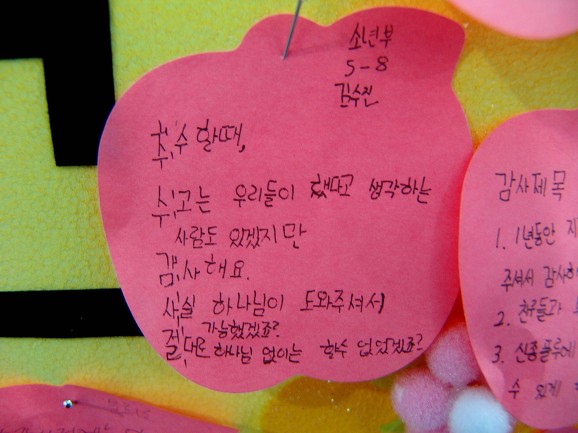 소년부
5-8
김수진
추수할때,
수고는 우리들이 했다고 생각하는
사람도 있겠지만
감사해요.
사실 하나님이 도와주셔서
가능했겠죠?
절대로 하나님 없이는 할수 없었겠죠?
감사제목
1. 1년동안
주셔서 감사하
2. 친구들과
3. 신종플루에
수 있게